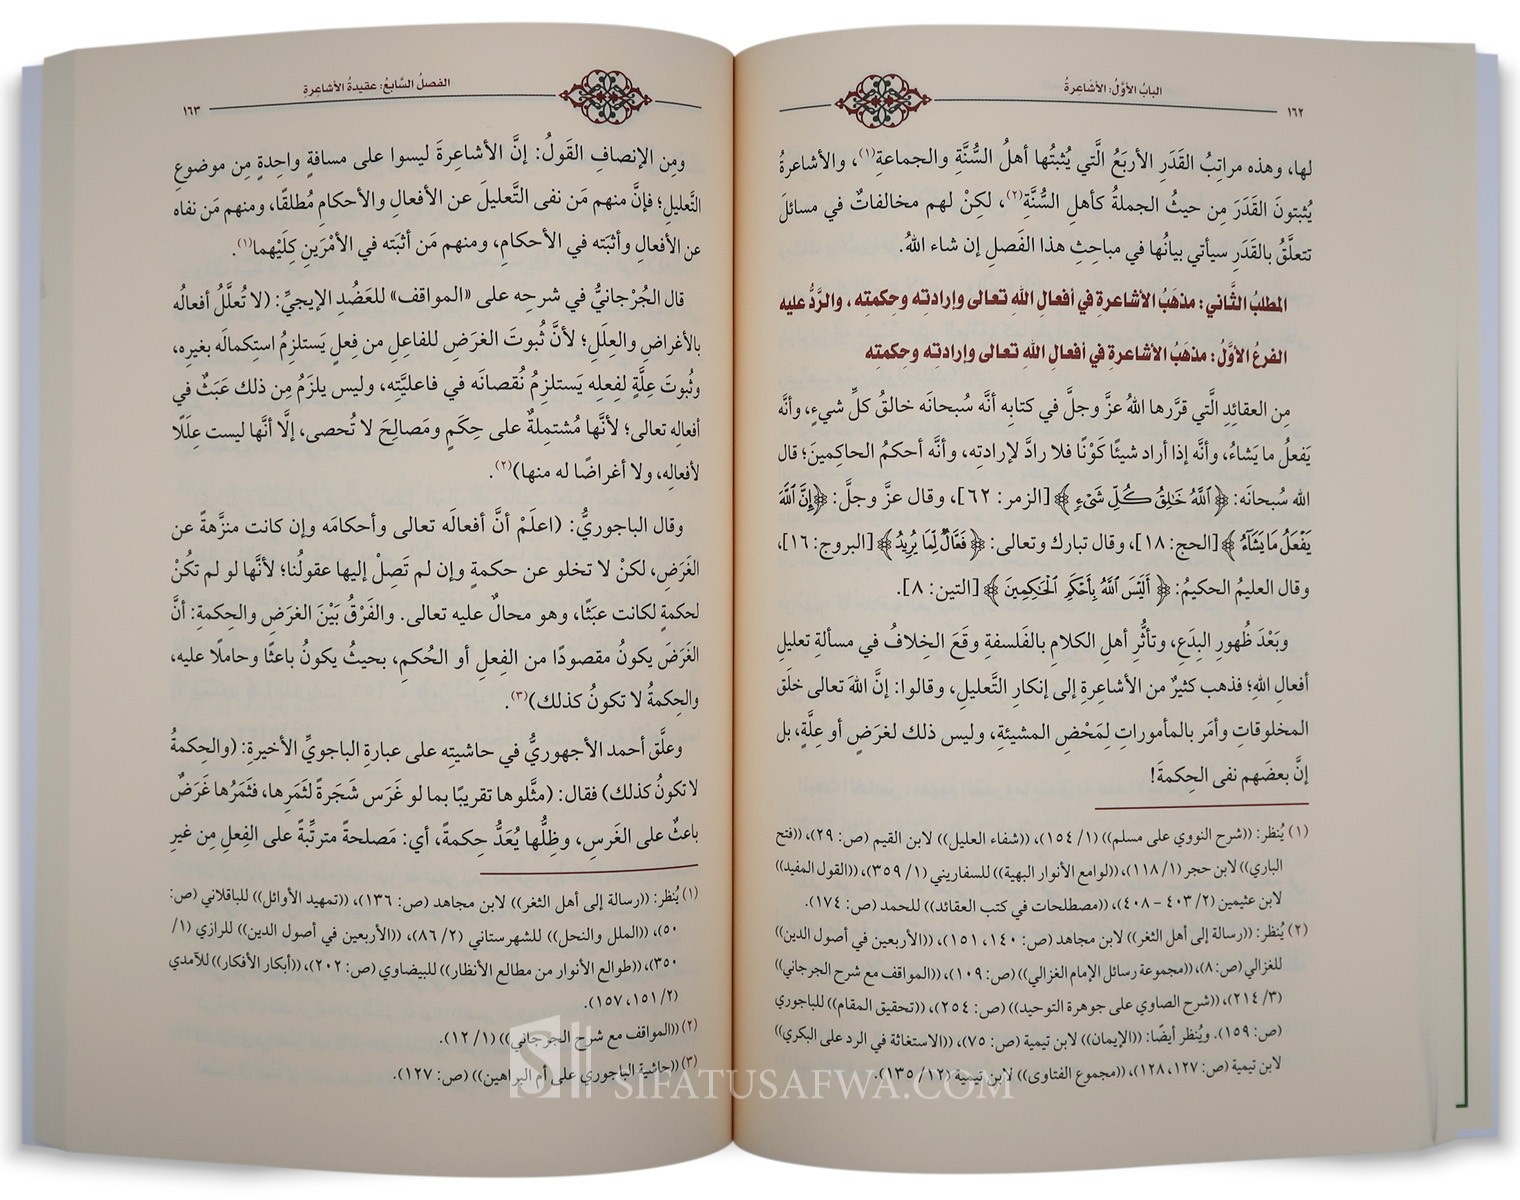 الباب الأوَّل: الأشاعِرةُ
١٦٢
لها، وهذه مراتِبُ القَدَرِ الأربَعُ الَّتي يُثبِتُها أهلُ السُّنَّةِ والجماعةِ(١)، والأشاعرةُ
يُثبِتونَ القَدَرَ مِن حيثُ الجملةُ كأهلِ السُّنَّةِ(٢)، لكِنْ لهم مخالفاتٌ في مسائلَ
تتعلَّقُ بالقَدَرِ سيأتي بيانُها في مباحِثِ هذا الفَصلِ إن شاء اللهُ.
المطلبُ الثَّاني: مذهَبُ الأشاعرةِ في أفعالِ اللهِ تعالى وإرادتِه وحِكمتِه، والرَّدُّ عليه
الفرعُ الأوَّلُ: مذهَبُ الأشاعرةِ في أفعالِ اللهِ تعالى وإرادتِه وحِكمتِه
مِن العقائِدِ الَّتي قرَّرها اللهُ عزَّ وجلَّ في كتابِه أنَّه سُبحانَه خالقُ كلِّ شيءٍ، وأنَّه
يَفعلُ ما يَشاءُ، وأنَّه إذا أراد شيئًا كَوْنًا فلا رادَّ لإرادتِه، وأنَّه أحكمُ الحاكِمينَ؛ قال
الله سُبحانَه: ﴿ٱللَّهُ خَٰلِقُ كُلِّ شَيْءٍ﴾ [الزمر: ٦٢]، وقال عزَّ وجلَّ: ﴿إِنَّ ٱللَّهَ
يَفْعَلُ مَا يَشَآءُ﴾ [الحج: ١٨]، وقال تبارك وتعالى: ﴿فَعَّالٌ لِّمَا يُرِيدُ﴾ [البروج: ١٦]،
وقال العليمُ الحكيمُ: ﴿أَلَيْسَ ٱللَّهُ بِأَحْكَمِ ٱلْحَٰكِمِينَ﴾ [التين: ٨].
وبَعْدَ ظُهورِ البِدَعِ، وتأثُّرِ أهلِ الكلامِ بالفَلسفةِ وقَعَ الخِلافُ في مسألةِ تعليلِ
أفعالِ اللهِ؛ فذهب كثيرٌ من الأشاعِرةِ إلى إنكارِ التَّعليلِ، وقالوا: إنَّ اللهَ تعالى خلَق
المخلوقاتِ وأمَر بالمأموراتِ لِمَحْضِ المشيئةِ، وليس ذلك لغرَضٍ أو عِلَّةٍ، بل
إنَّ بعضَهم نفى الحِكمةَ!
(١) يُنظر: ((شرح النووي على مسلم)) (١/ ١٥٤)، ((شفاء العليل)) لابن القيم (ص: ٢٩)، ((فتح
الباري)) لابن حجر (١/ ١١٨)، ((لوامع الأنوار البهية)) للسفاريني (١/ ٣٥٩)، ((القول المفيد))
لابن عثيمين (٢/ ٤٠٣ - ٤٠٨)، ((مصطلحات في كتب العقائد)) للحمد (ص: ١٧٤).
(٢) يُنظر: ((رسالة إلى أهل الثغر)) لابن مجاهد (ص: ١٤٠، ١٥١)، ((الأربعين في أصول الدين))
للغزالي (ص: ٨)، ((مجموعة رسائل الإمام الغزالي)) (ص: ١٠٩)، ((المواقف مع شرح الجرجاني))
(٣/ ٢١٤)، ((شرح الصاوي على جوهرة التوحيد)) (ص: ٢٥٤)، ((تحقيق المقام)) للباجوري
(ص: ١٥٩). ويُنظر أيضًا: ((الإيمان)) لابن تيمية (ص: ٧٥)، ((الاستغاثة في الرد على البكري))
لابن تيمية (ص: ١٢٧، ١٢٨)، ((مجموع الفتاوى)) لابن تيمية (١٢/ ١٣٥).
الفصلُ السَّابعُ: عقيدةُ الأشاعِرةِ
١٦٣
ومِن الإنصافِ القَولُ: إنَّ الأشاعِرةَ ليسوا على مسافةٍ واحِدةٍ مِن موضوعِ
التَّعليلِ؛ فإنَّ منهم مَن نفى التَّعليلَ عن الأفعالِ والأحكامِ مُطلقًا، ومنهم مَن نفاه
عن الأفعالِ وأثبَته في الأحكامِ، ومنهم مَن أثبَته في الأمْرَينِ كِلَيْهما(١).
قال الجُرْجانيُّ في شرحِه على «المواقف» للعَضُدِ الإيجيِّ: (لا تُعلَّلُ أفعالُه
بالأغراضِ والعِلَلِ؛ لأنَّ ثُبوتَ الغرَضِ للفاعِلِ من فِعلٍ يَستلزِمُ استِكمالَه بغيرِه،
وثُبوتَ عِلَّةٍ لفِعلِه يَستلزِمُ نُقصانَه في فاعليَّتِه، وليس يلزَمُ مِن ذلك عَبَثٌ في
أفعالِه تعالى؛ لأنَّها مُشتمِلةٌ على حِكَمٍ ومَصالِحَ لا تُحصى، إلَّا أنَّها ليست عِلَلًا
لأفعالِه، ولا أغراضًا له منها)(٢).
وقال الباجوريُّ: (اعلَمْ أنَّ أفعالَه تعالى وأحكامَه وإن كانت منزَّهةً عن
الغَرَضِ، لكنْ لا تخلو عن حكمةٍ وإن لم تَصِلْ إليها عقولُنا؛ لأنَّها لو لم تكُنْ
لحكمةٍ لكانت عبَثًا، وهو محالٌ عليه تعالى. والفَرْقُ بَيْنَ الغرَضِ والحِكمةِ: أنَّ
الغَرَضَ يكونُ مقصودًا من الفِعلِ أو الحُكمِ، بحيثُ يكونُ باعثًا وحاملًا عليه،
والحِكمةُ لا تكونُ كذلك)(٣).
وعلَّق أحمد الأجهوريُّ في حاشيتِه على عبارةِ الباجوريِّ الأخيرةِ: (والحِكمةُ
لا تكونُ كذلك) فقال: (مثَّلوها تقريبًا بما لو غرَس شَجَرةً لثَمَرِها، فثَمَرُها غَرَضٌ
باعثٌ على الغَرسِ، وظِلُّها يُعَدُّ حِكمةً، أي: مَصلحةً مترتِّبةً على الفِعلِ مِن غيرِ
(١) يُنظر: ((رسالة إلى أهل الثغر)) لابن مجاهد (ص: ١٣٦)، ((تمهيد الأوائل)) للباقلاني (ص:
٥٠)، ((الملل والنحل)) للشهرستاني (٢/ ٨٦)، ((الأربعين في أصول الدين)) للرازي (١/
٣٥٠)، ((طوالع الأنوار من مطالع الأنظار)) للبيضاوي (ص: ٢٠٢)، ((أبكار الأفكار)) للآمدي
(٢/ ١٥١، ١٥٧).
(٢) ((المواقف مع شرح الجرجاني)) (١/ ١٢).
(٣) ((حاشية الباجوري على أم البراهين)) (ص: ١٢٧).
SIFATUSAFWA.COM